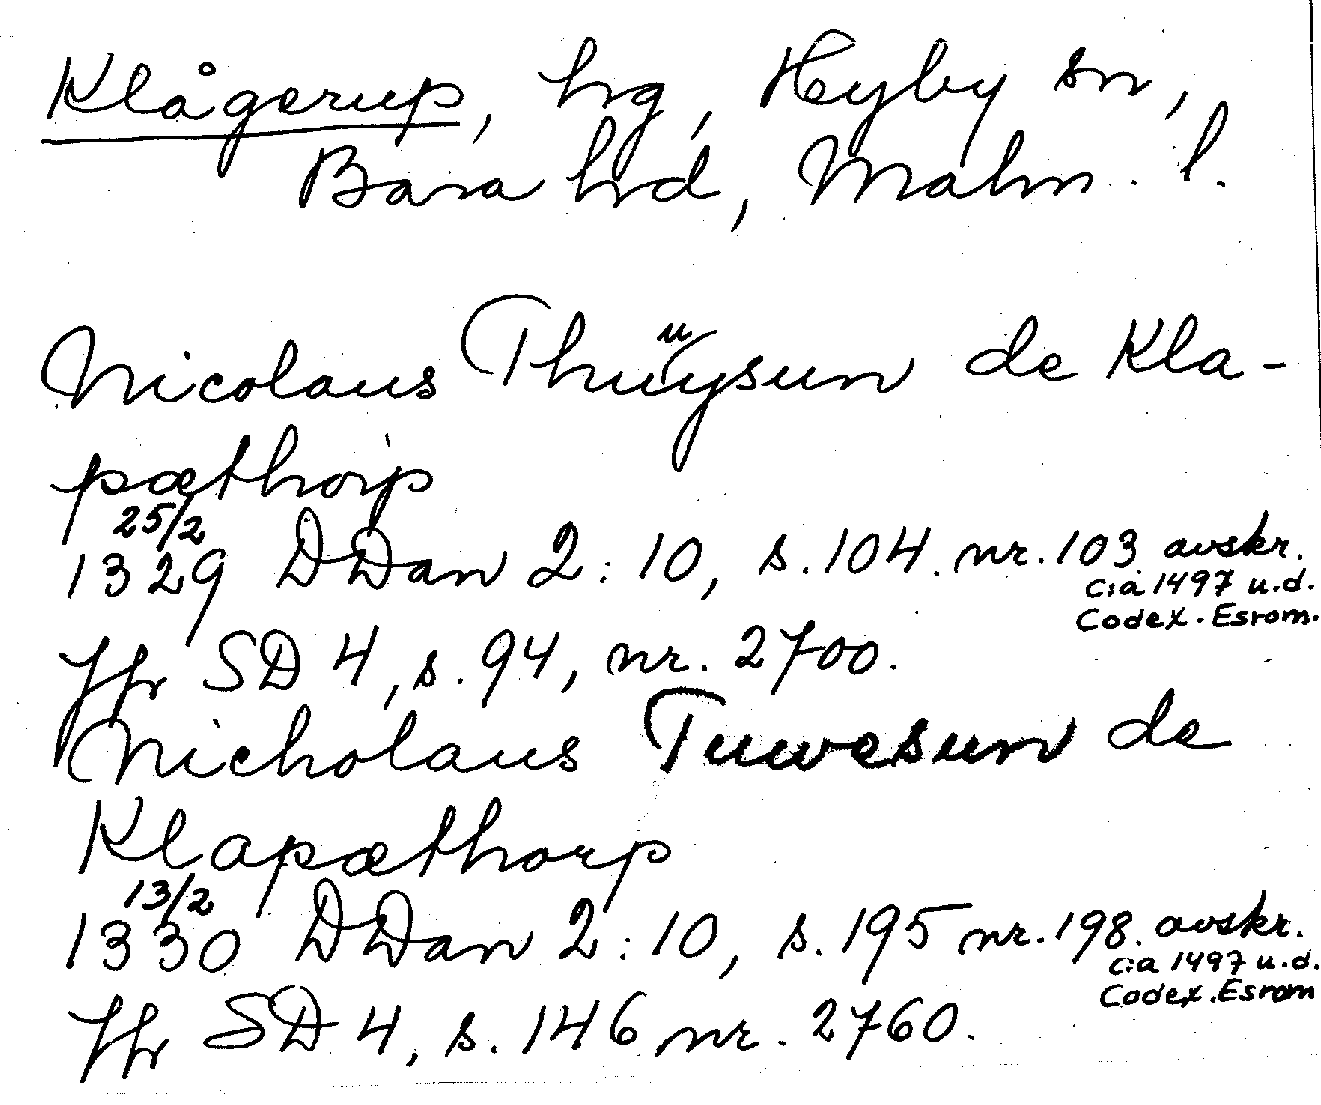 Klågerup, hg, Hyby sn,
Bara hrd, Malm. l.
Nicolaus Thüÿsun de Kla-
pæthorp
25/2
1329 DDan 2:10, s.104. nr.103. avskr.
c:a 1497 u.d.
Codex. Esrom.
Jfr SD 4, s.94, nr. 2700.
Nicholaus Tuwesun de
Klapæthorp
13/2
1330 DDan 2:10, s.195 nr.198. avskr.
c:a 1497 u.d.
Codex. Esrom
Jfr SD 4, s.146 nr. 2760.